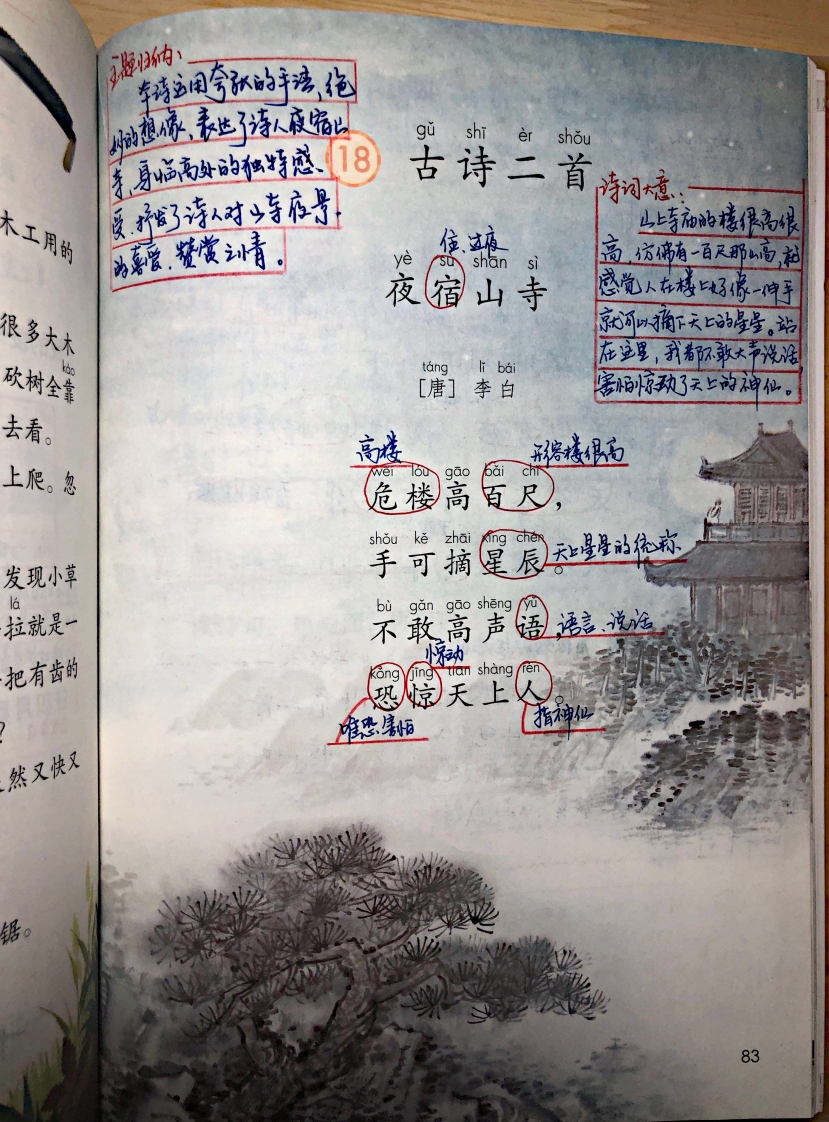 木工用的
很多大木
kào
砍树全靠
去看。
上爬。忽
发现小草
lá
拉就是一
把有齿的
？
然又快又
锯。
主题归纳：
本诗运用夸张的手法，绝
妙的想像，表达了诗人夜宿山
寺，身临高处的独特感
受，抒发了诗人对山寺夜景
的喜爱、赞赏之情。
18
gǔ shī èr shǒu
古诗二首
诗词大意：
山上寺庙的楼很高很
高，仿佛有一百尺那么高，就
感觉人在楼上好像一伸手
就可以摘下天上的星星。站
在这里，我都不敢大声说话，
害怕惊动了天上的神仙。
住、过夜
yè sù shān sì
夜宿山寺
táng lǐ bái
［唐］李白
高楼
形容楼很高
wēi lóu gāo bǎi chǐ
危楼高百尺，
shǒu kě zhāi xīng chén
手可摘星辰。
天上星星的统称
bù gǎn gāo shēng yǔ
不敢高声语，
语言、说话
惊动
kǒng jīng tiān shàng rén
恐惊天上人。
唯恐、害怕
指神仙
83